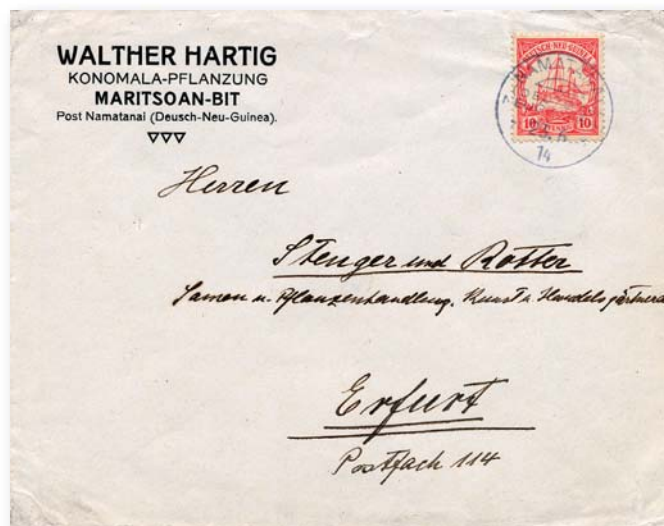 WALTHER HARTIG
KONOMALA-PFLANZUNG
MARITSOAN-BIT
Post Namatanai (Deusch-Neu-Guinea).
DEUTSCH-NEU-GUINEA
NAMATANAI
10 10
14
Herren
Stenger und Rotter
Samen u. Pflanzenhandlung, Kunst u. Handelsgärtnerei
Erfurt
Postfach 114